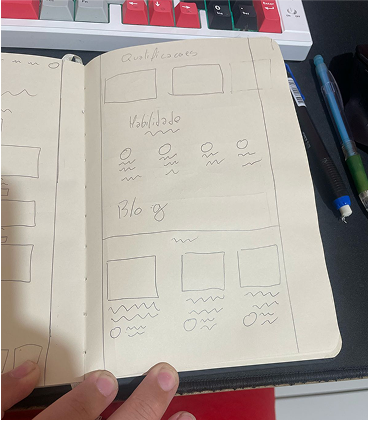 Qualificacoes
Habilidade
Blog